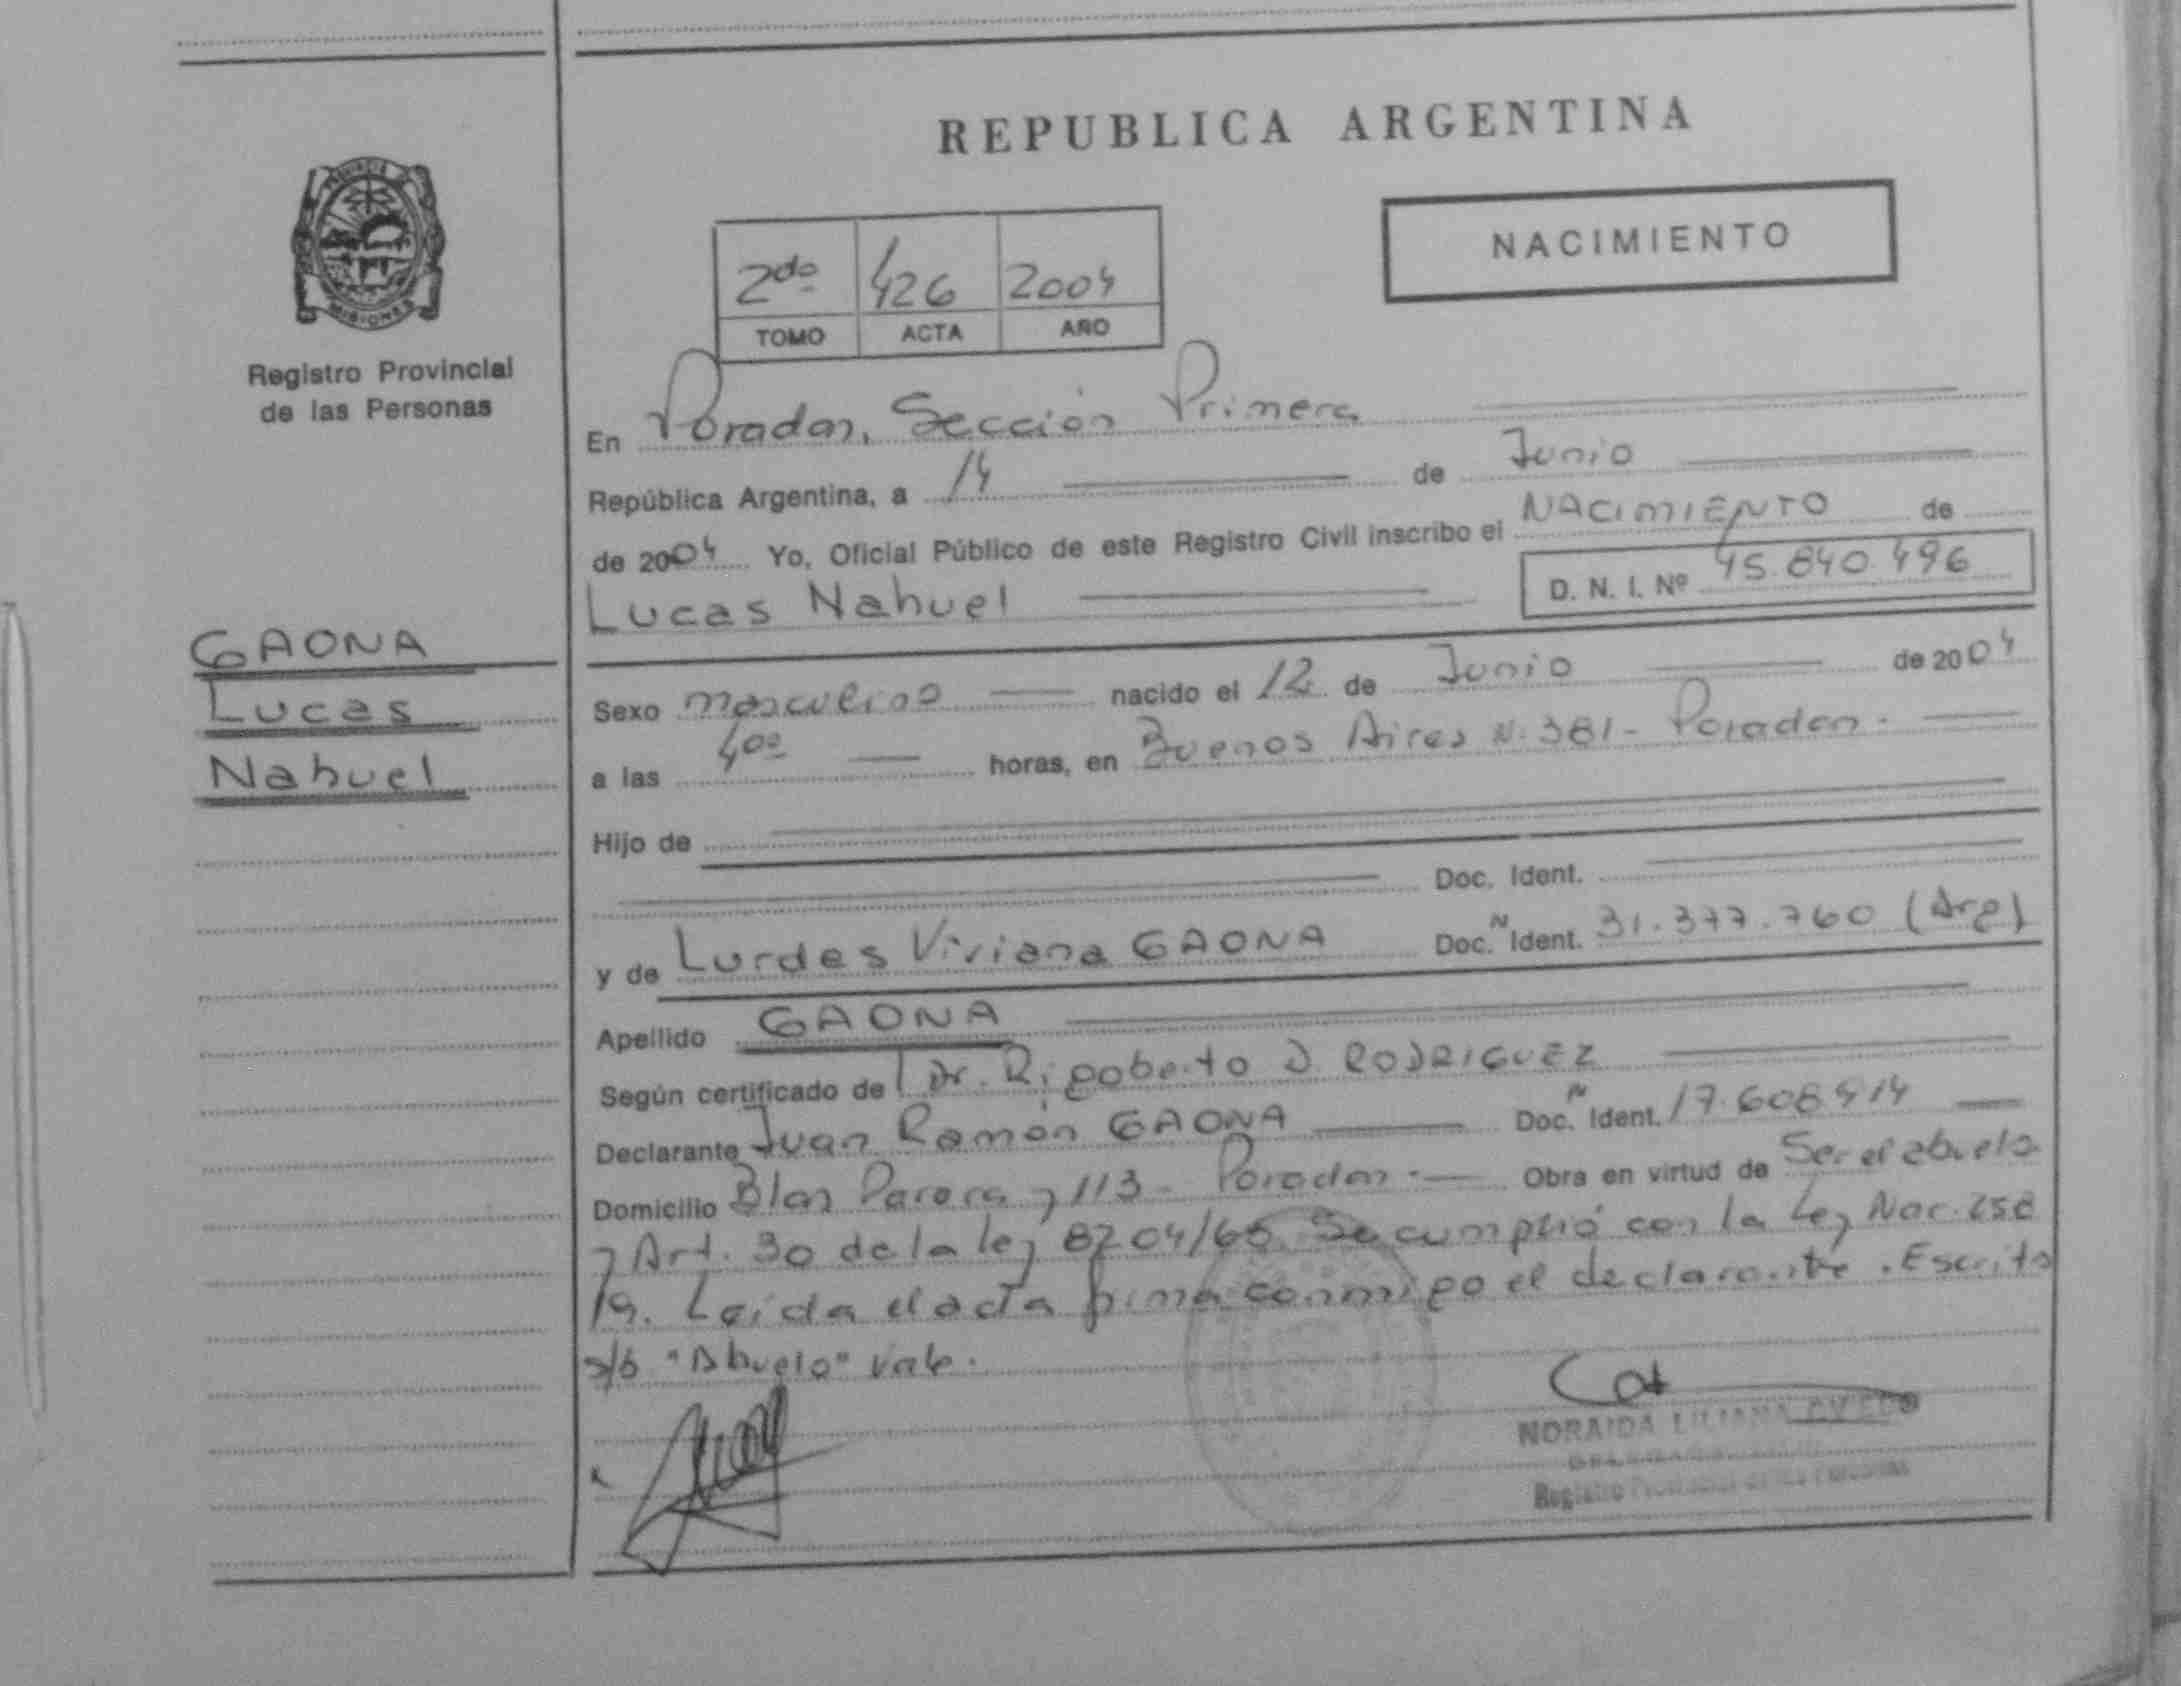 REPUBLICA ARGENTINA
NACIMIENTO
2do 426 2004
TOMO ACTA AÑO
Registro Provincial
de las Personas
En Posadas, Sección Primera
República Argentina, a 14 de Junio
de 2004 Yo, Oficial Público de este Registro Civil inscribo el NACIMIENTO de
Lucas Nahuel D. N. I. Nº 45.840.496
GAONA
Lucas
Nahuel
Sexo masculino nacido el 12 de Junio de 2004
a las 400 horas, en Buenos Aires N. 381 - Posadas.
Hijo de
Doc. Ident.
y de Lurdes Viviana GAONA Doc. N Ident. 31.377.760 (Arg)
Apellido GAONA
Según certificado de Dr. Rigoberto D. RODRIGUEZ
Declarante Juan Ramón GAONA Doc. N Ident. 17.608.414
Domicilio Blas Parera 7113 - Posadas. Obra en virtud de Ser el abuelo
y Art. 30 de la ley 8204/63. Se cumplió con la Ley Nac. 258
19. Leída el acta firma conmigo el declarante. Escrito
s/b "Abuelo" vale.
NORAIDA LILIANA
Registro Provincial de las Personas